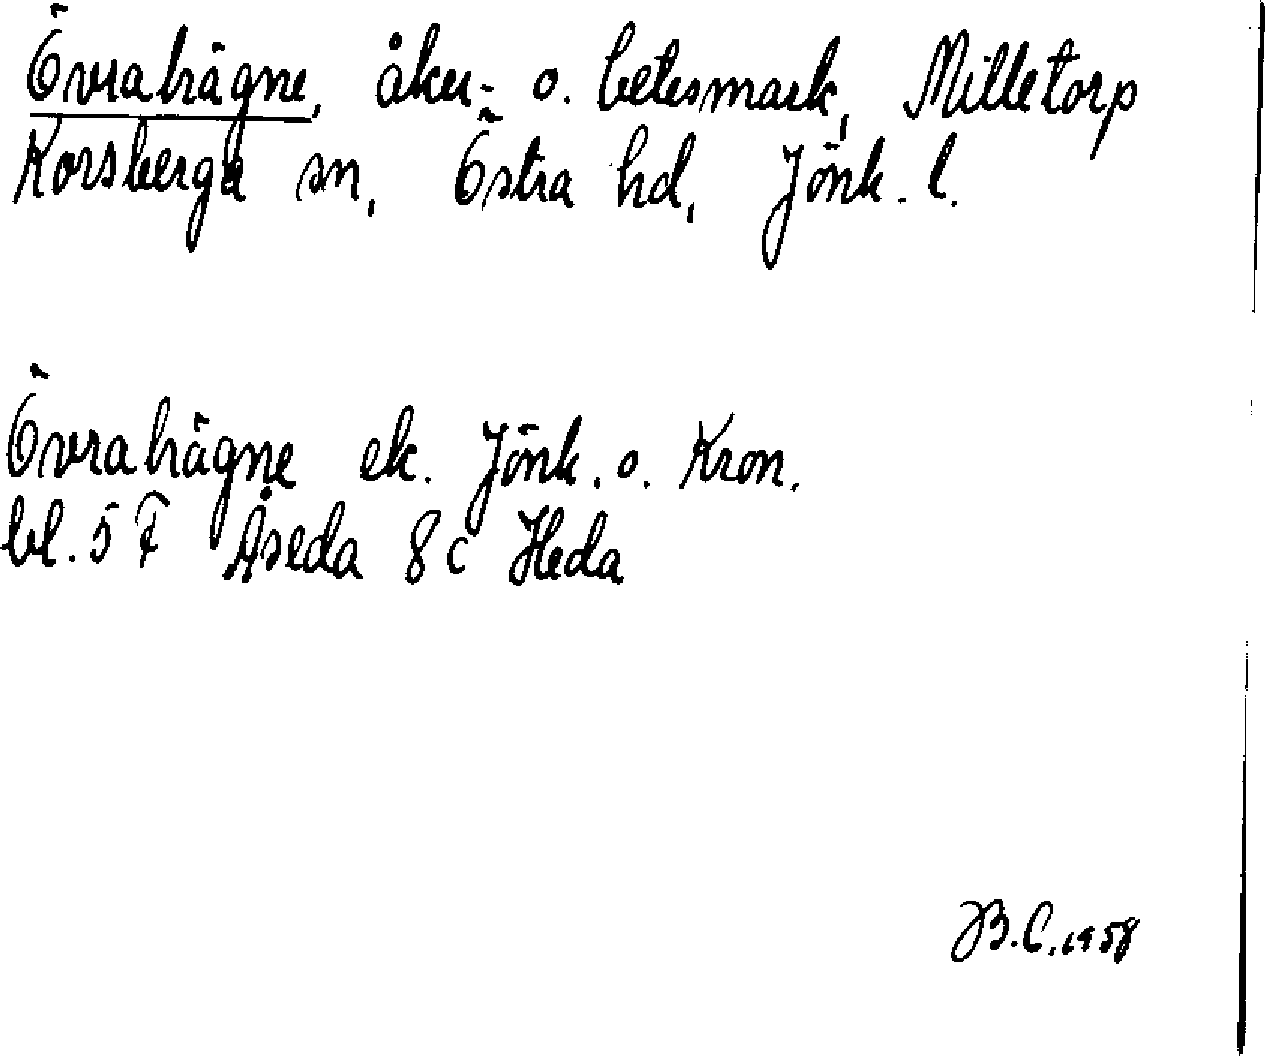 Övrahägne, åker- o. betesmark, Milletorp
Korsberga sn, Östra hd, Jönk. l.
Övrahägne ek. Jönk. o. Kron.
bl. 5 F Åseda 8 c Heda
B.C. 1958